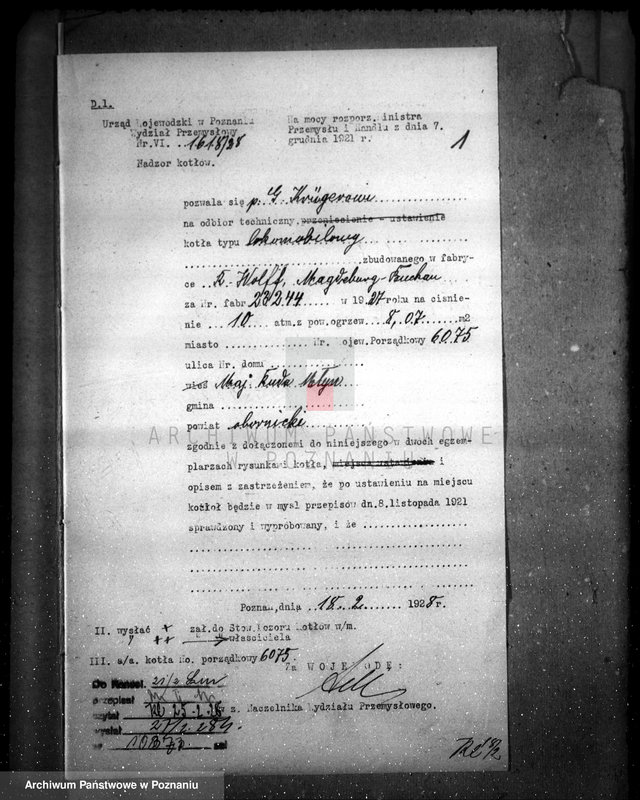 D.1.
Urząd Wojewodzki w Poznaniu
Wydział Przemysłowy
Nr.VI. 1618/28
Nadzor kotłów.
Na mocy rozporz. ministra
Przemysłu i Handlu z dnia 7.
grudnia 1921 r.
1
pozwala się p. G. Krügerowi
na odbior techniczny, przeniesienie - ustawienie
kotła typu lokomobilowy
zbudowanego w fabry-
ce R. Wolff, Magdeburg-Buckau
za Nr. fabr 23244 w 1927 roku na cisnie-
nie 10 atm. z pow. ogrzew 8,07 m2
miasto Nr. Wojew. Porządkowy 6075
ulica Nr. domu
wieś Maj. Ruda Młyn
gmina
powiat obornicki
zgodnie z dołączonemi do niniejszego w dwoch egzem-
plarzach rysunkami kotła, miejsca ustawienia i
opisem z zastrzeżeniem, że po ustawieniu na miejscu
kotłoł będzie w mysl przepisów dn. 8. listopada 1921
sprawdzony i wypróbowany, i że
Poznań, dnia 18. 2. 1928 r.
II. wysłać + zał. do Stow. Dozoru Kotłów w/m.
" ++ właściciela
III. a/a. kotła No. porządkowy 6075.
Za WOJEWODĘ:
w z. Naczelnika Wydziału Przemysłowego.
Do Kancel. 21/2
przepisał
czytał 25.2.28
wysłał 27/2 28
ARCHIWUM PAŃSTWOWE
W POZNANIU
Archiwum Państwowe w Poznaniu